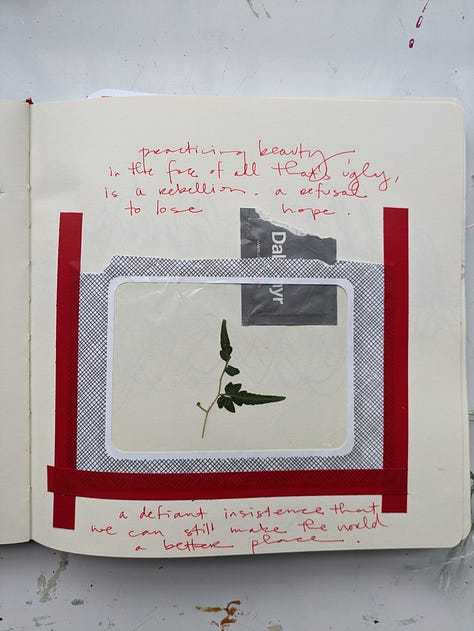 practicing beauty
in the face of all that's ugly,
is a rebellion. a refusal
to lose hope.
a defiant insistence that
we can still make the world
a better place.